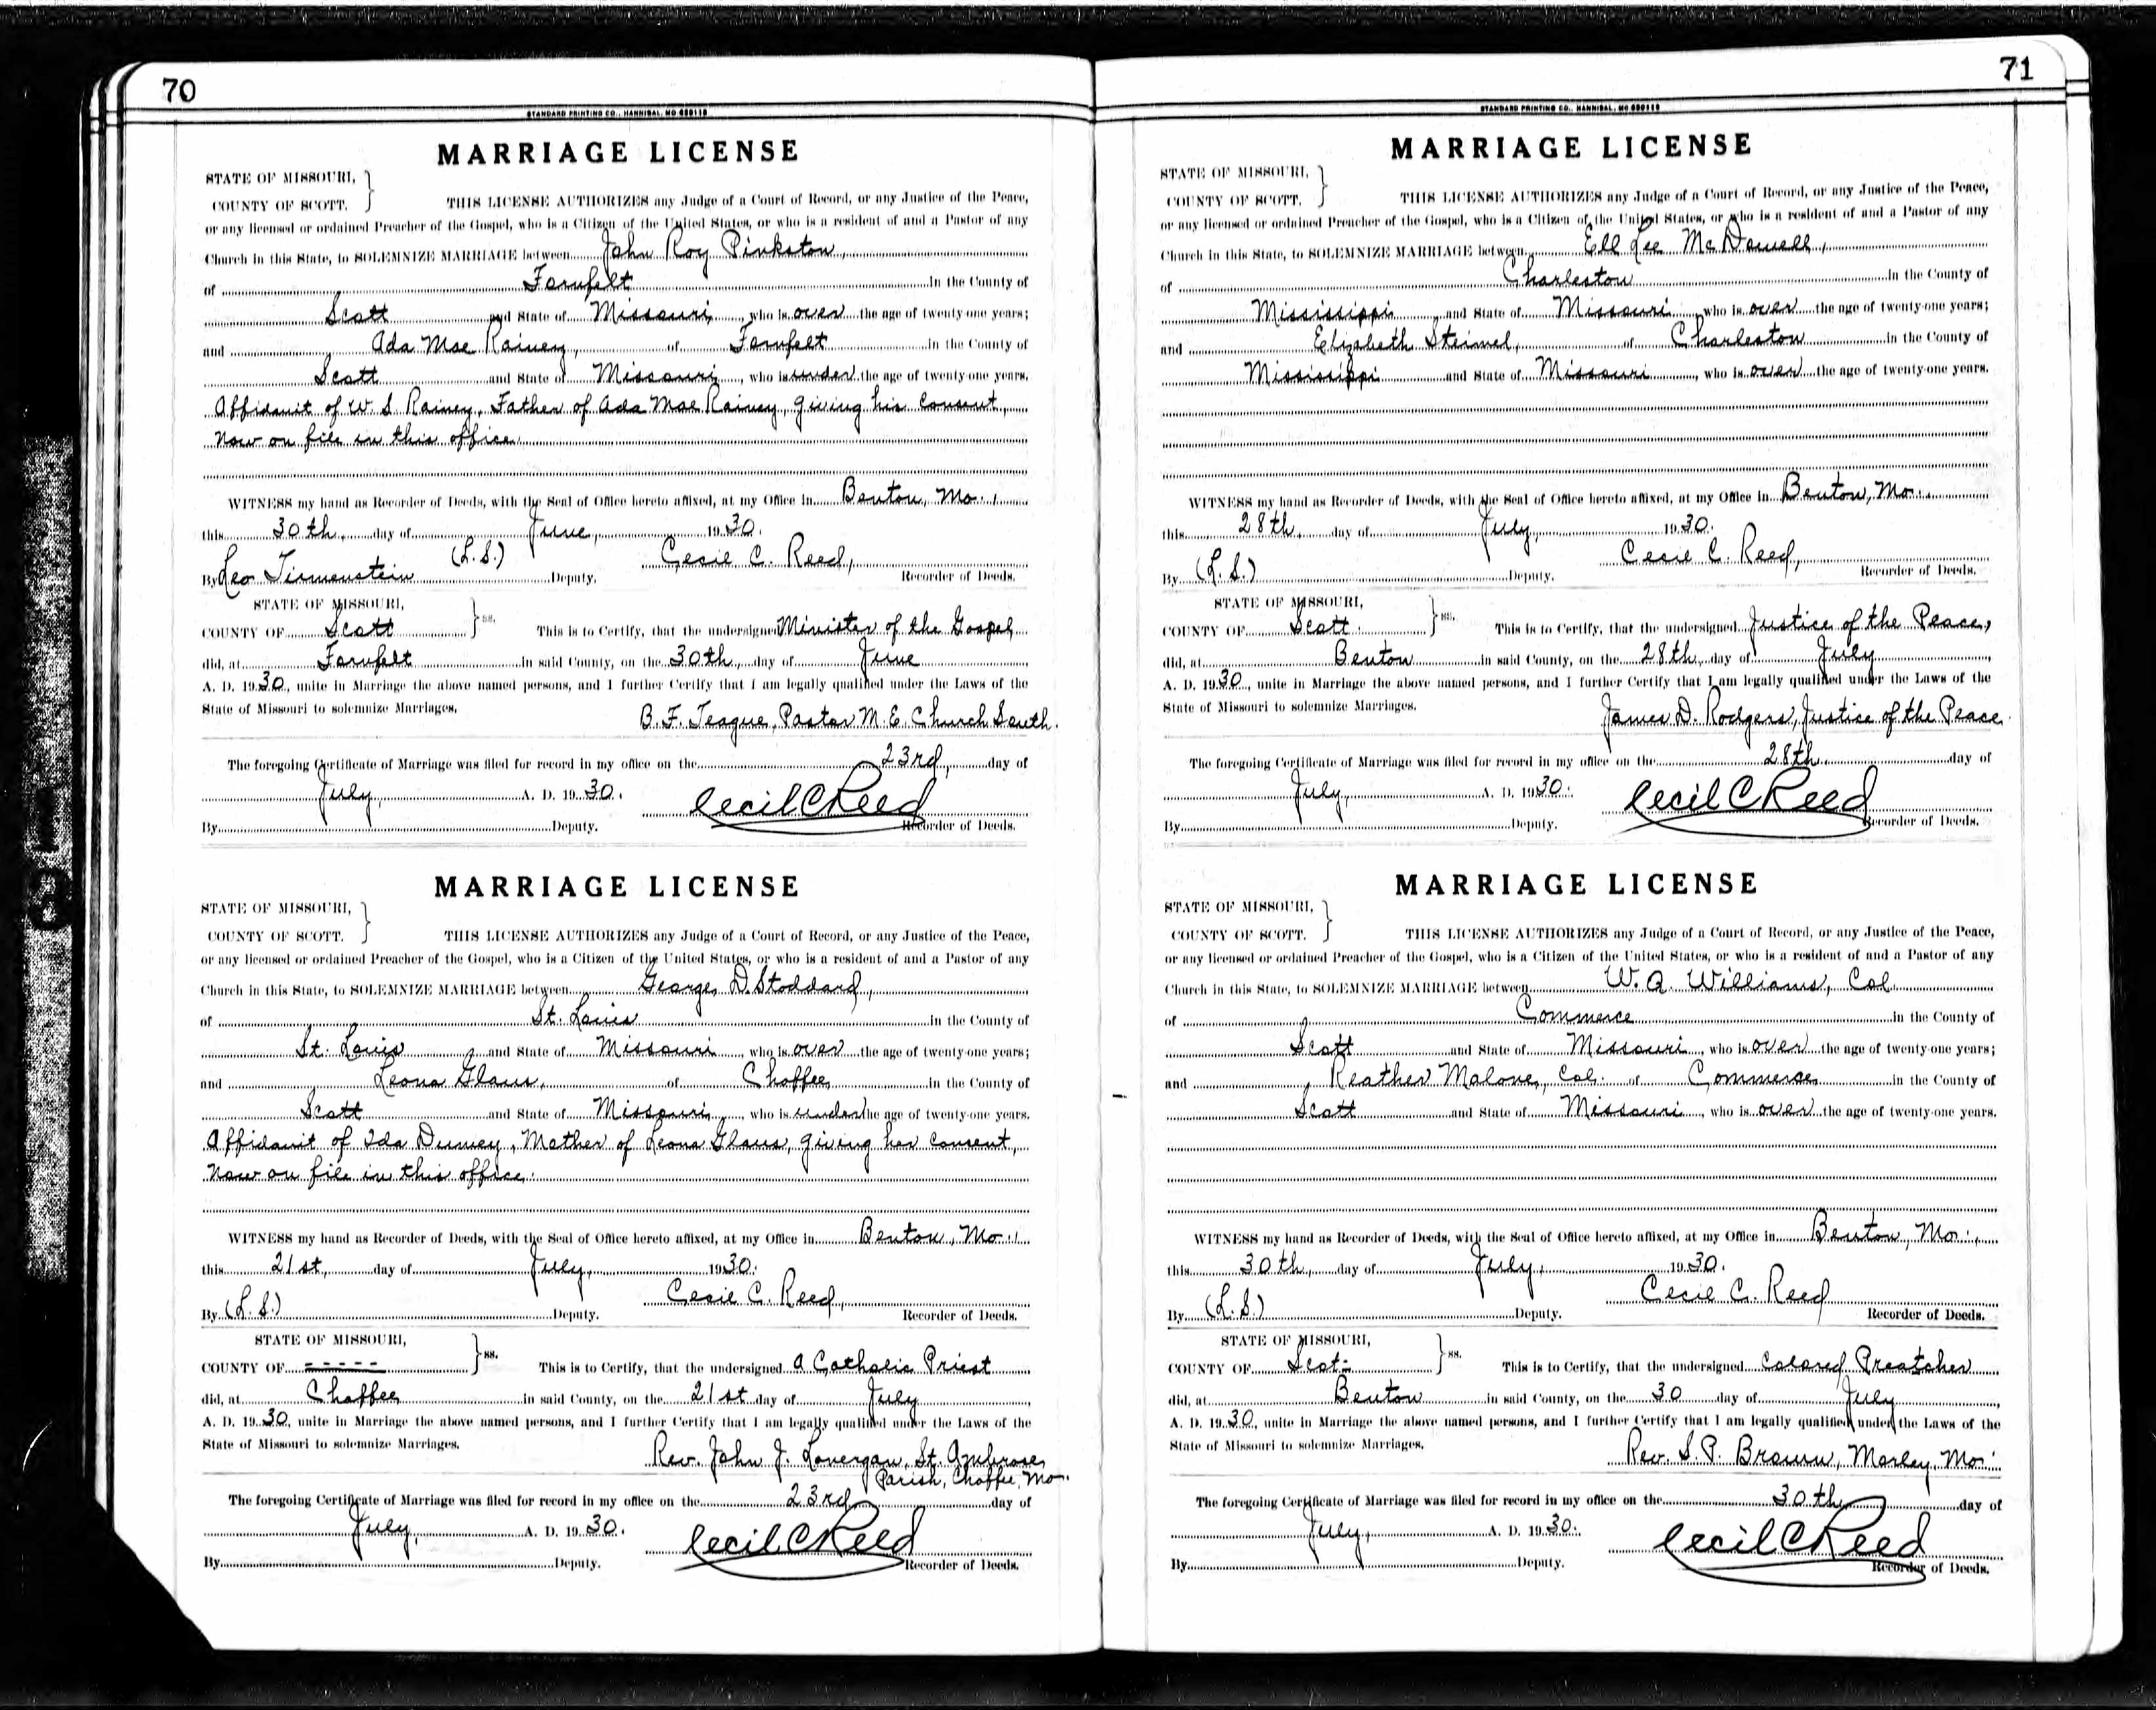 70
STANDARD PRINTING CO., HANNIBAL, MO 689118
MARRIAGE LICENSE
STATE OF MISSOURI,
COUNTY OF SCOTT.
THIS LICENSE AUTHORIZES any Judge of a Court of Record, or any Justice of the Peace,
or any licensed or ordained Preacher of the Gospel, who is a Citizen of the United States, or who is a resident of and a Pastor of any
Church in this State, to SOLEMNIZE MARRIAGE between John Roy Pinkston,
of Fornfelt in the County of
Scott and State of Missouri, who is over the age of twenty-one years;
and Ada Mae Rainey, of Fornfelt in the County of
Scott and State of Missouri, who is under the age of twenty-one years.
Affidavit of W. S. Rainey, Father of Ada Mae Rainey, giving his consent,
now on file in this office.
WITNESS my hand as Recorder of Deeds, with the Seal of Office hereto affixed, at my Office in Benton, Mo.,
this 30th, day of June, 1930.
(L.S.) Cecil C. Reed,
By Leo Tirmenstein Deputy. Recorder of Deeds.
STATE OF MISSOURI,
COUNTY OF Scott ss. This is to Certify, that the undersigned Minister of the Gospel
did, at Fornfelt in said County, on the 30th, day of June
A. D. 1930, unite in Marriage the above named persons, and I further Certify that I am legally qualified under the Laws of the
State of Missouri to solemnize Marriages.
B. F. Teague, Pastor M. E. Church South.
The foregoing Certificate of Marriage was filed for record in my office on the 23rd, day of
July, A. D. 1930. Cecil C Reed
By Deputy. Recorder of Deeds.
MARRIAGE LICENSE
STATE OF MISSOURI,
COUNTY OF SCOTT.
THIS LICENSE AUTHORIZES any Judge of a Court of Record, or any Justice of the Peace,
or any licensed or ordained Preacher of the Gospel, who is a Citizen of the United States, or who is a resident of and a Pastor of any
Church in this State, to SOLEMNIZE MARRIAGE between George D. Stoddard,
of St. Louis in the County of
St. Louis and State of Missouri, who is over the age of twenty-one years;
and Leona Glaus, of Chaffee in the County of
Scott and State of Missouri, who is under the age of twenty-one years.
Affidavit of Ida Dumey, Mother of Leona Glaus, giving her consent,
now on file in this office.
WITNESS my hand as Recorder of Deeds, with the Seal of Office hereto affixed, at my Office in Benton, Mo.,
this 21st, day of July, 1930.
Cecil C. Reed,
By (L.S.) Deputy. Recorder of Deeds.
STATE OF MISSOURI,
COUNTY OF ----- ss. This is to Certify, that the undersigned a Catholic Priest
did, at Chaffee in said County, on the 21st day of July,
A. D. 1930, unite in Marriage the above named persons, and I further Certify that I am legally qualified under the Laws of the
State of Missouri to solemnize Marriages.
Rev. John J. Lonergan, St. Ambrose
Parish, Chaffee, Mo.
The foregoing Certificate of Marriage was filed for record in my office on the 23rd day of
July, A. D. 1930. Cecil C Reed
By Deputy. Recorder of Deeds.
71
STANDARD PRINTING CO., HANNIBAL, MO 689118
MARRIAGE LICENSE
STATE OF MISSOURI,
COUNTY OF SCOTT.
THIS LICENSE AUTHORIZES any Judge of a Court of Record, or any Justice of the Peace,
or any licensed or ordained Preacher of the Gospel, who is a Citizen of the United States, or who is a resident of and a Pastor of any
Church in this State, to SOLEMNIZE MARRIAGE between Ell Lee McDowell,
of Charleston in the County of
Mississippi and State of Missouri who is over the age of twenty-one years;
and Elizabeth Steimel, of Charleston in the County of
Mississippi and State of Missouri, who is over the age of twenty-one years.
WITNESS my hand as Recorder of Deeds, with the Seal of Office hereto affixed, at my Office in Benton, Mo.,
this 28th, day of July, 1930.
Cecil C. Reed,
By (L.S.) Deputy. Recorder of Deeds.
STATE OF MISSOURI,
COUNTY OF Scott ss. This is to Certify, that the undersigned Justice of the Peace,
did, at Benton in said County, on the 28th, day of July,
A. D. 1930, unite in Marriage the above named persons, and I further Certify that I am legally qualified under the Laws of the
State of Missouri to solemnize Marriages.
James D. Rodgers, Justice of the Peace.
The foregoing Certificate of Marriage was filed for record in my office on the 28th day of
July, A. D. 1930. Cecil C Reed
By Deputy. Recorder of Deeds.
MARRIAGE LICENSE
STATE OF MISSOURI,
COUNTY OF SCOTT.
THIS LICENSE AUTHORIZES any Judge of a Court of Record, or any Justice of the Peace,
or any licensed or ordained Preacher of the Gospel, who is a Citizen of the United States, or who is a resident of and a Pastor of any
Church in this State, to SOLEMNIZE MARRIAGE between W. A. Williams, Col.
of Commerce in the County of
Scott and State of Missouri, who is over the age of twenty-one years;
and Reather Malone, Col. of Commerce in the County of
Scott and State of Missouri, who is over the age of twenty-one years.
WITNESS my hand as Recorder of Deeds, with the Seal of Office hereto affixed, at my Office in Benton, Mo.,
this 30th, day of July, 1930.
Cecil C. Reed
By (L.S.) Deputy. Recorder of Deeds.
STATE OF MISSOURI,
COUNTY OF Scot- ss. This is to Certify, that the undersigned Colored Preatcher
did, at Benton in said County, on the 30 day of July,
A. D. 1930, unite in Marriage the above named persons, and I further Certify that I am legally qualified under the Laws of the
State of Missouri to solemnize Marriages.
Rev. S. P. Brown, Morley, Mo.
The foregoing Certificate of Marriage was filed for record in my office on the 30th, day of
July, A. D. 1930. Cecil C Reed
By Deputy. Recorder of Deeds.